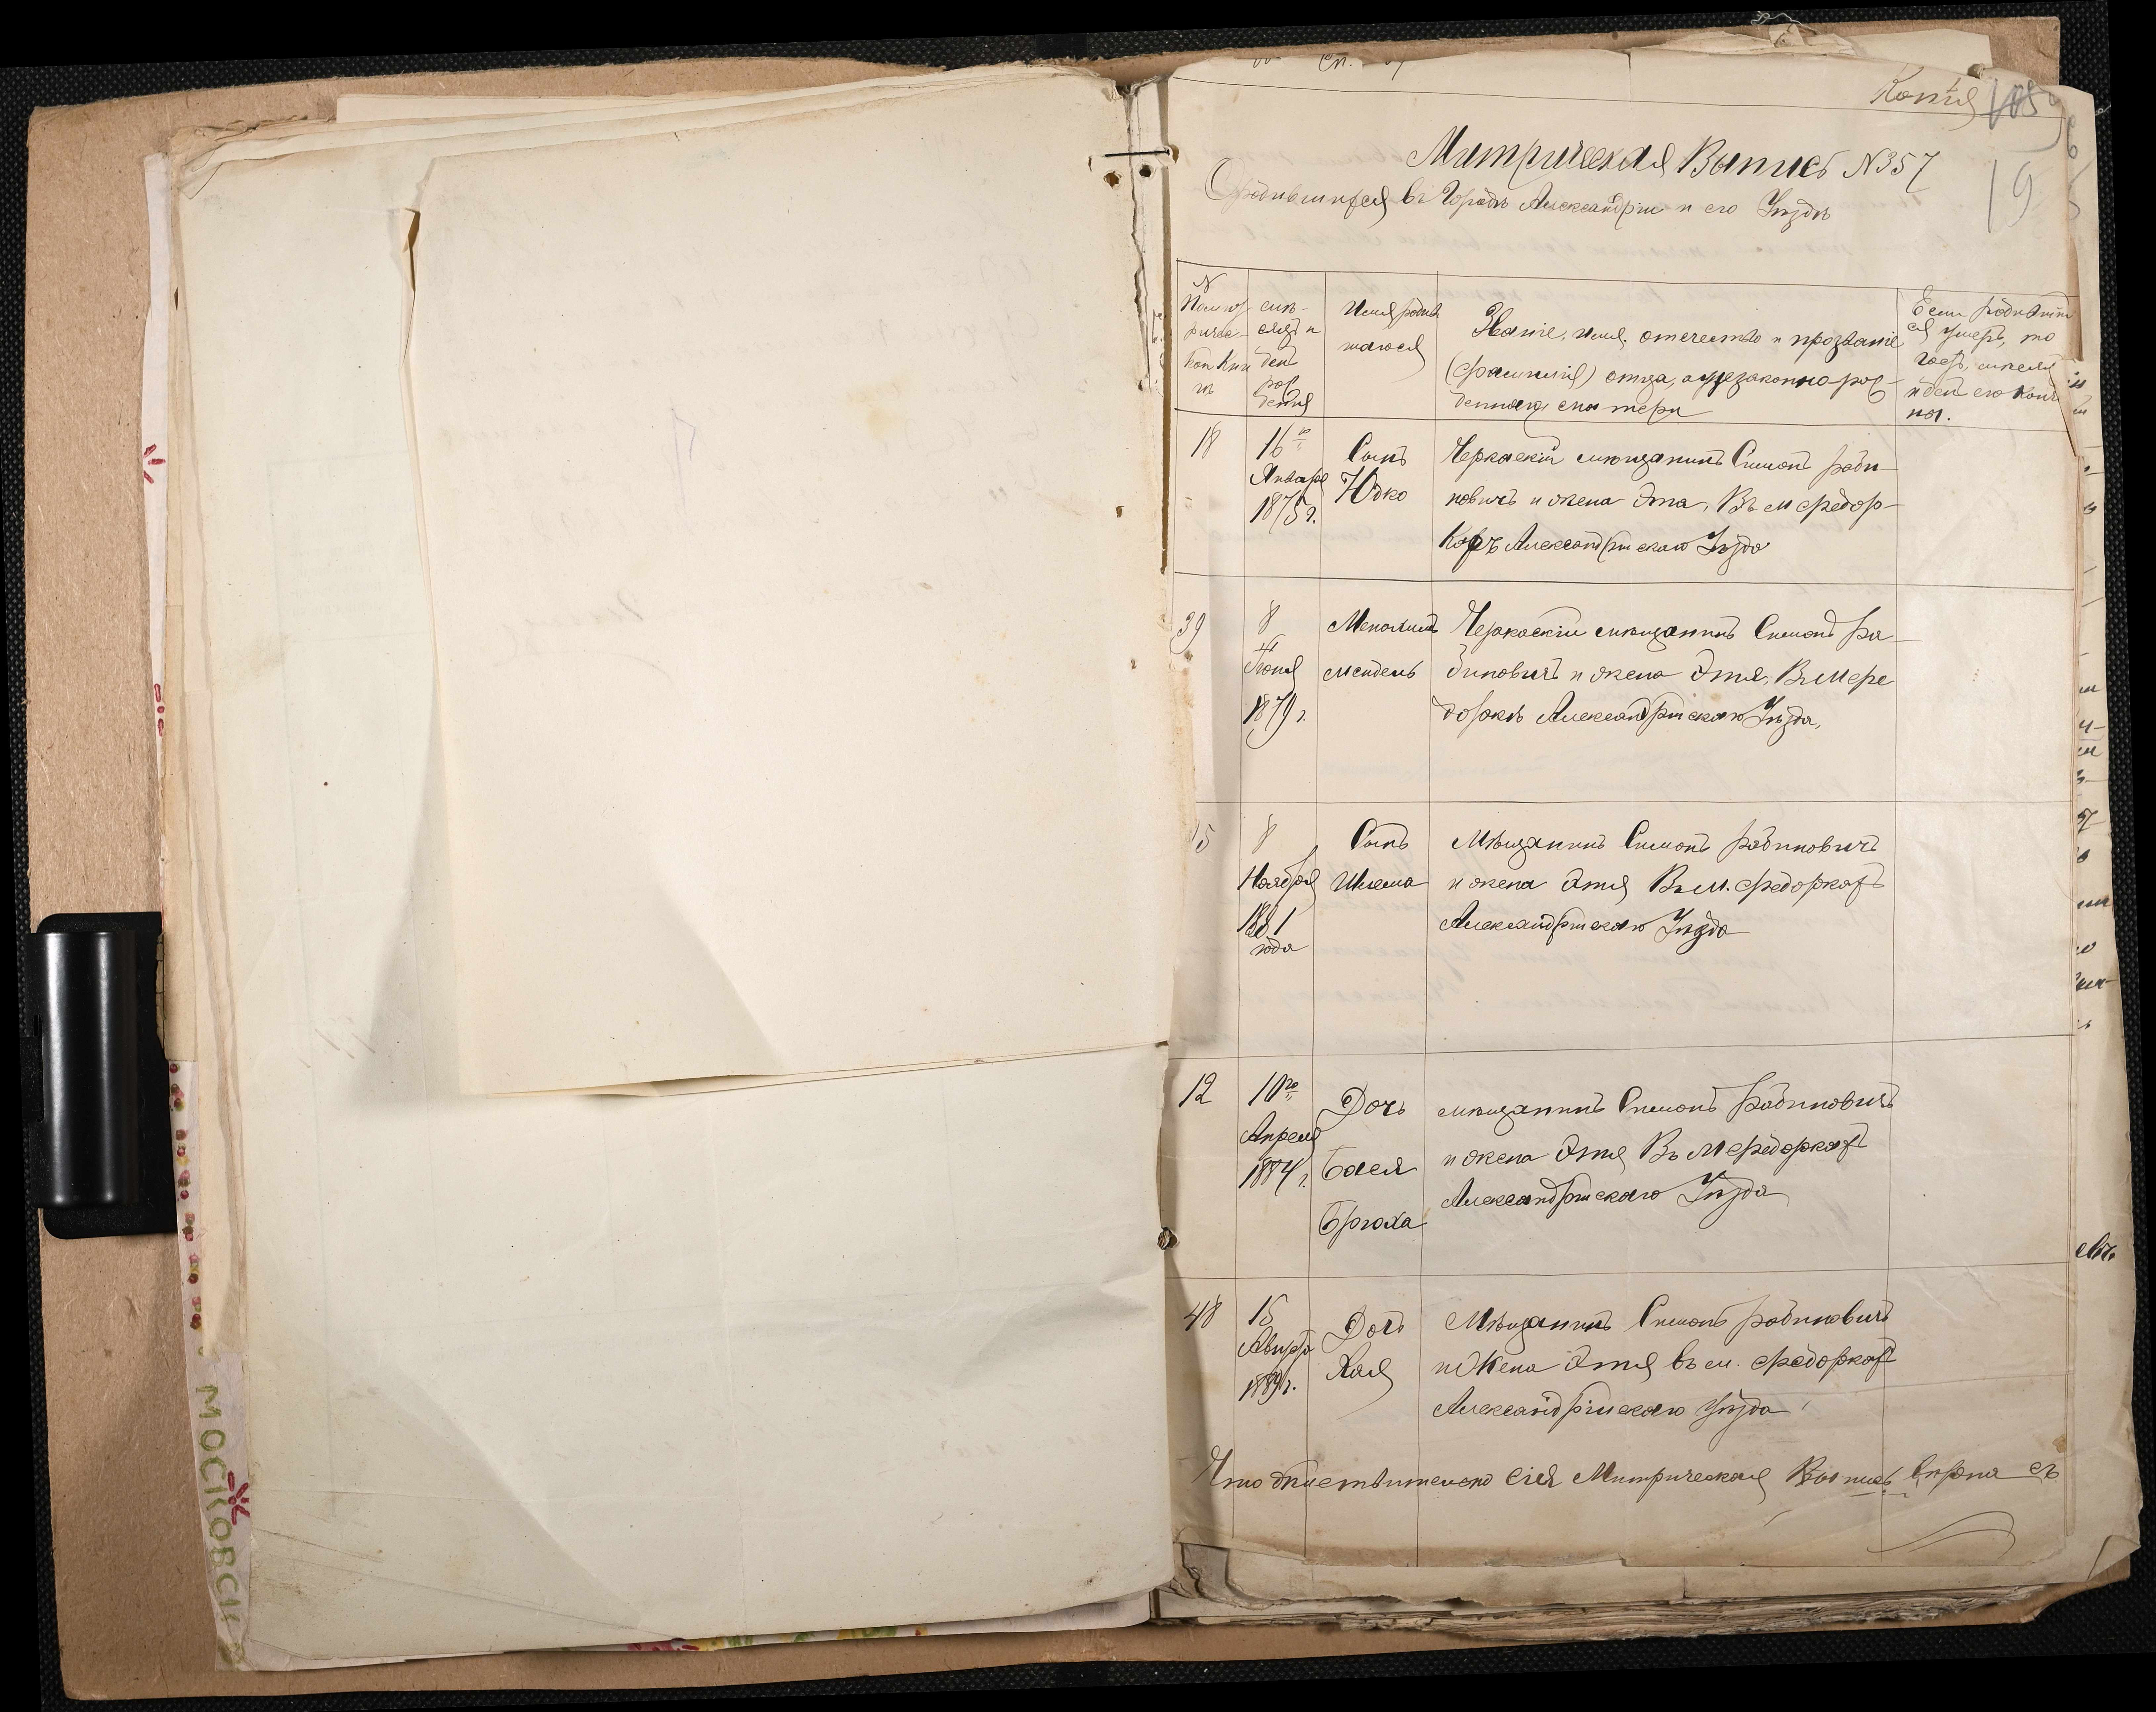 Копія
19
Митрическая Выпись N357
О родившихся въ Городѣ Александріи и его Уѣздѣ
N Метрической Книги
мѣсяцъ и день рожденія
Имя родившагося
Званіе, имя, отечество и прозваніе
(фамилія) отца, а незаконно-рож-
деннаго матери
Если родившій
ся умеръ, то
годъ, мѣсяцъ
и день его кончи
ны.
18
16го
Января
1875 г.
Сынъ
Юдко
Черкаскій мѣщанинъ Симонъ Раби-
новичъ и жена Этя, Въ м Федор-
кахъ Александрійскаго Уѣзда
39
8
Іюня
1879 г.
Менахимъ
Мендель
Черкаскій мѣщанинъ Симонъ Ра-
биновичъ и жена Этя, Въ м Фе
доркѣ Александрійскаго Уѣзда,
5
8
Ноября
1881
года
Сынъ
Шлема
Мѣщанинъ Симонъ Рабиновичъ
и жена Этя Въ м. Федоркахъ
Александрійскаго Уѣзда
12
10го
Апреля
1884 г.
Дочь
Бася
Бруха
мѣщанинъ Симонъ Рабиновичъ
и жена Этя Въ м Федоркахъ
Александрійскаго Уѣзда
48
15
Августа
1889 г.
Дочь
Хая
Мѣщанинъ Симонъ Рабиновичъ
и Жена Этя въ м. Федоркахъ
Александрійскаго Уѣзда
Что дѣйствительно сія Митрическая Выпись вѣрна съ
МОСКОВСК